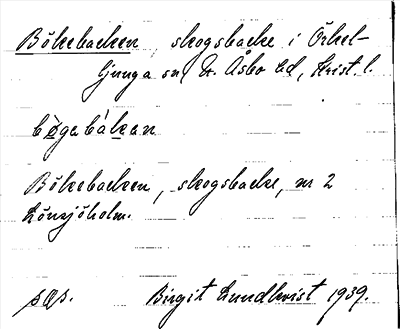 Bökebacken, skogsbacke i Örkel-
ljunga sn, N. Åsbo hd, Krist. l.
bøgabakan
Bökebacken, skogsbacke, nr 2
Lönsjöholm.
Birgit Lundkvist 1939.